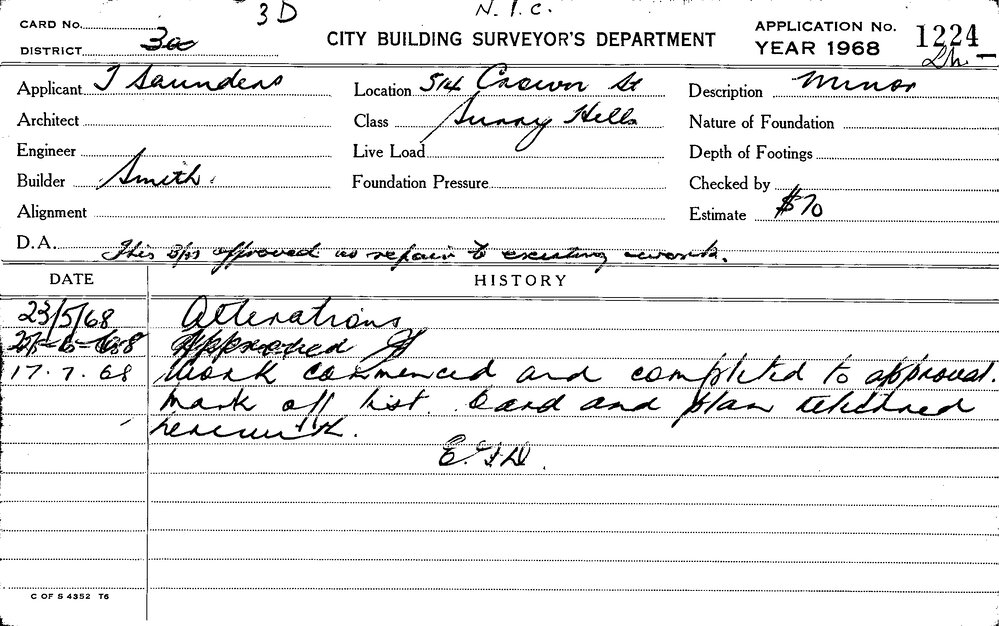 3D N.I.C.
CARD No.
DISTRICT
CITY BUILDING SURVEYOR'S DEPARTMENT
APPLICATION No. 1224
YEAR 1968
Applicant J Saunders Location 514 Crown St Description Minor
Architect Class Surry Hills Nature of Foundation
Engineer Live Load Depth of Footings
Builder Smith Foundation Pressure Checked by
Alignment Estimate $70
D.A. This approved as repair to existing work.
DATE HISTORY
23/5/68 Alterations
Approved
17.7.68 Work commenced and completed to approval.
Mark off list. Card and plan returned
herewith.
C OF S 4352 T6